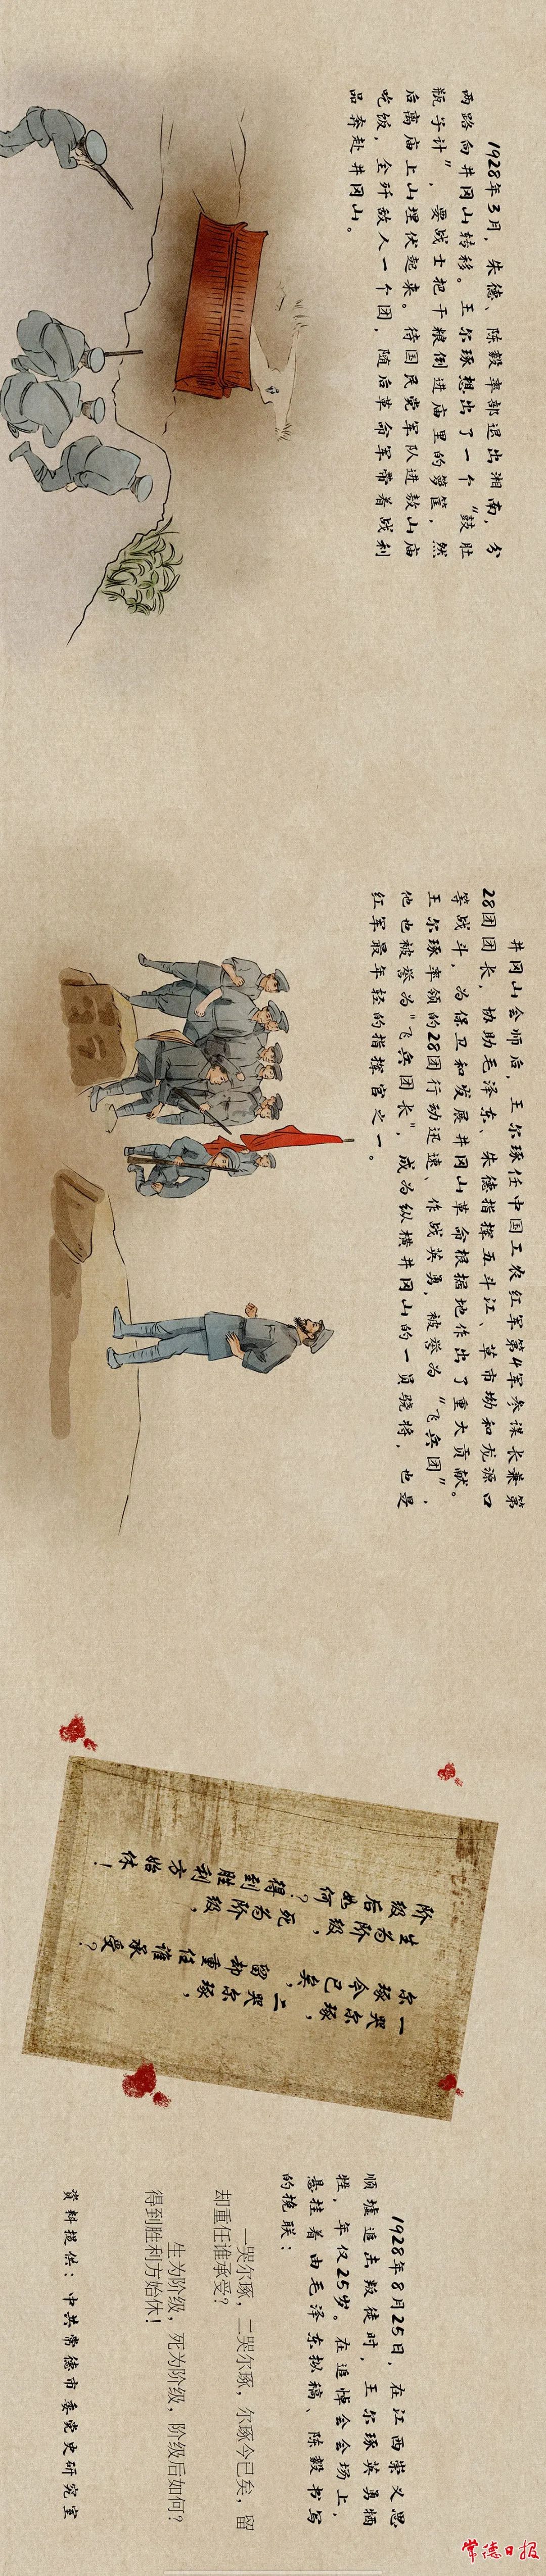 1928年3月，朱德、陈毅率部退出湘南，分
两路向井冈山转移。王尔琢想出了一个“鼓肚
瓶子计”，要战士把干粮倒进庙里的箩筐，然
后离庙上山埋伏起来。待国民党军队进敖山庙
吃饭，全歼敌人一个团，随后革命军带着战利
品奔赴井冈山。
井冈山会师后，王尔琢任中国工农红军第4军参谋长兼第
28团团长，协助毛泽东、朱德指挥五斗江、草市坳和龙源口
等战斗，为保卫和发展井冈山革命根据地作出了重大贡献。
王尔琢率领的28团行动迅速、作战英勇，被誉为“飞兵团”，
他也被誉为“飞兵团长”，成为纵横井冈山的一员骁将，也是
红军最年轻的指挥官之一。
一哭尔琢，二哭尔琢，
尔琢今已矣，留却重任谁承受？
生为阶级，死为阶级，
阶级后如何？得到胜利方始休！
1928年8月25日，在江西崇义思
顺墟追击叛徒时，王尔琢英勇牺
牲，年仅25岁。在追悼会会场上，
悬挂着由毛泽东拟稿、陈毅书写
的挽联：
一哭尔琢，二哭尔琢，尔琢今已矣，留
却重任谁承受？
生为阶级，死为阶级，阶级后如何？
得到胜利方始休！
资料提供：中共常德市委党史研究室
常德日报